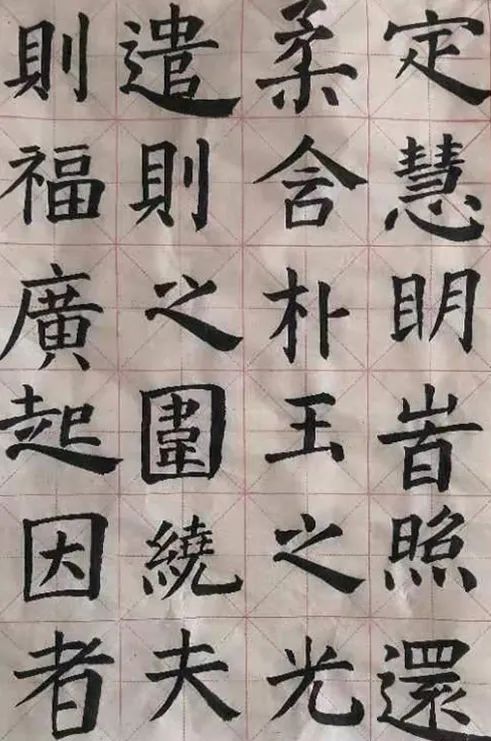 定慧眀旹照還
柔含朴玉之光
遣則之圍繞夫
則福廣起因者